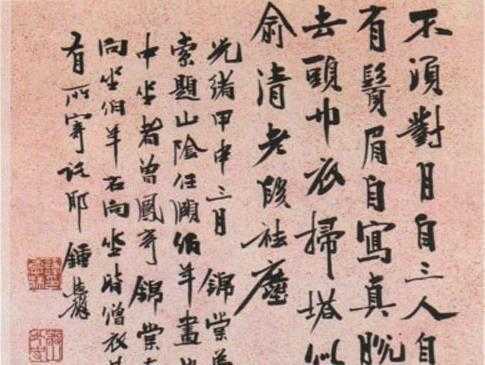 不須對月自三人自
有鬢眉自寫真脫
去頭巾衣掃塔似
俞清老祛塵
光緒甲申三月 錦堂
索題山陰任頤伯年畫
中坐者曾鳳寄 錦堂
向坐伯年右向坐時僧衣
有所寄託耶 鍾